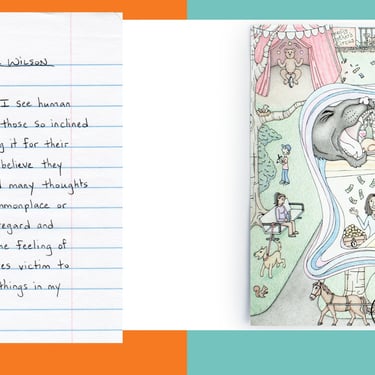 WILSON
I see human
those so inclined
g it for their
believe they
d many thoughts
mmonplace or
regard and
e feeling of
es victim to
things in my